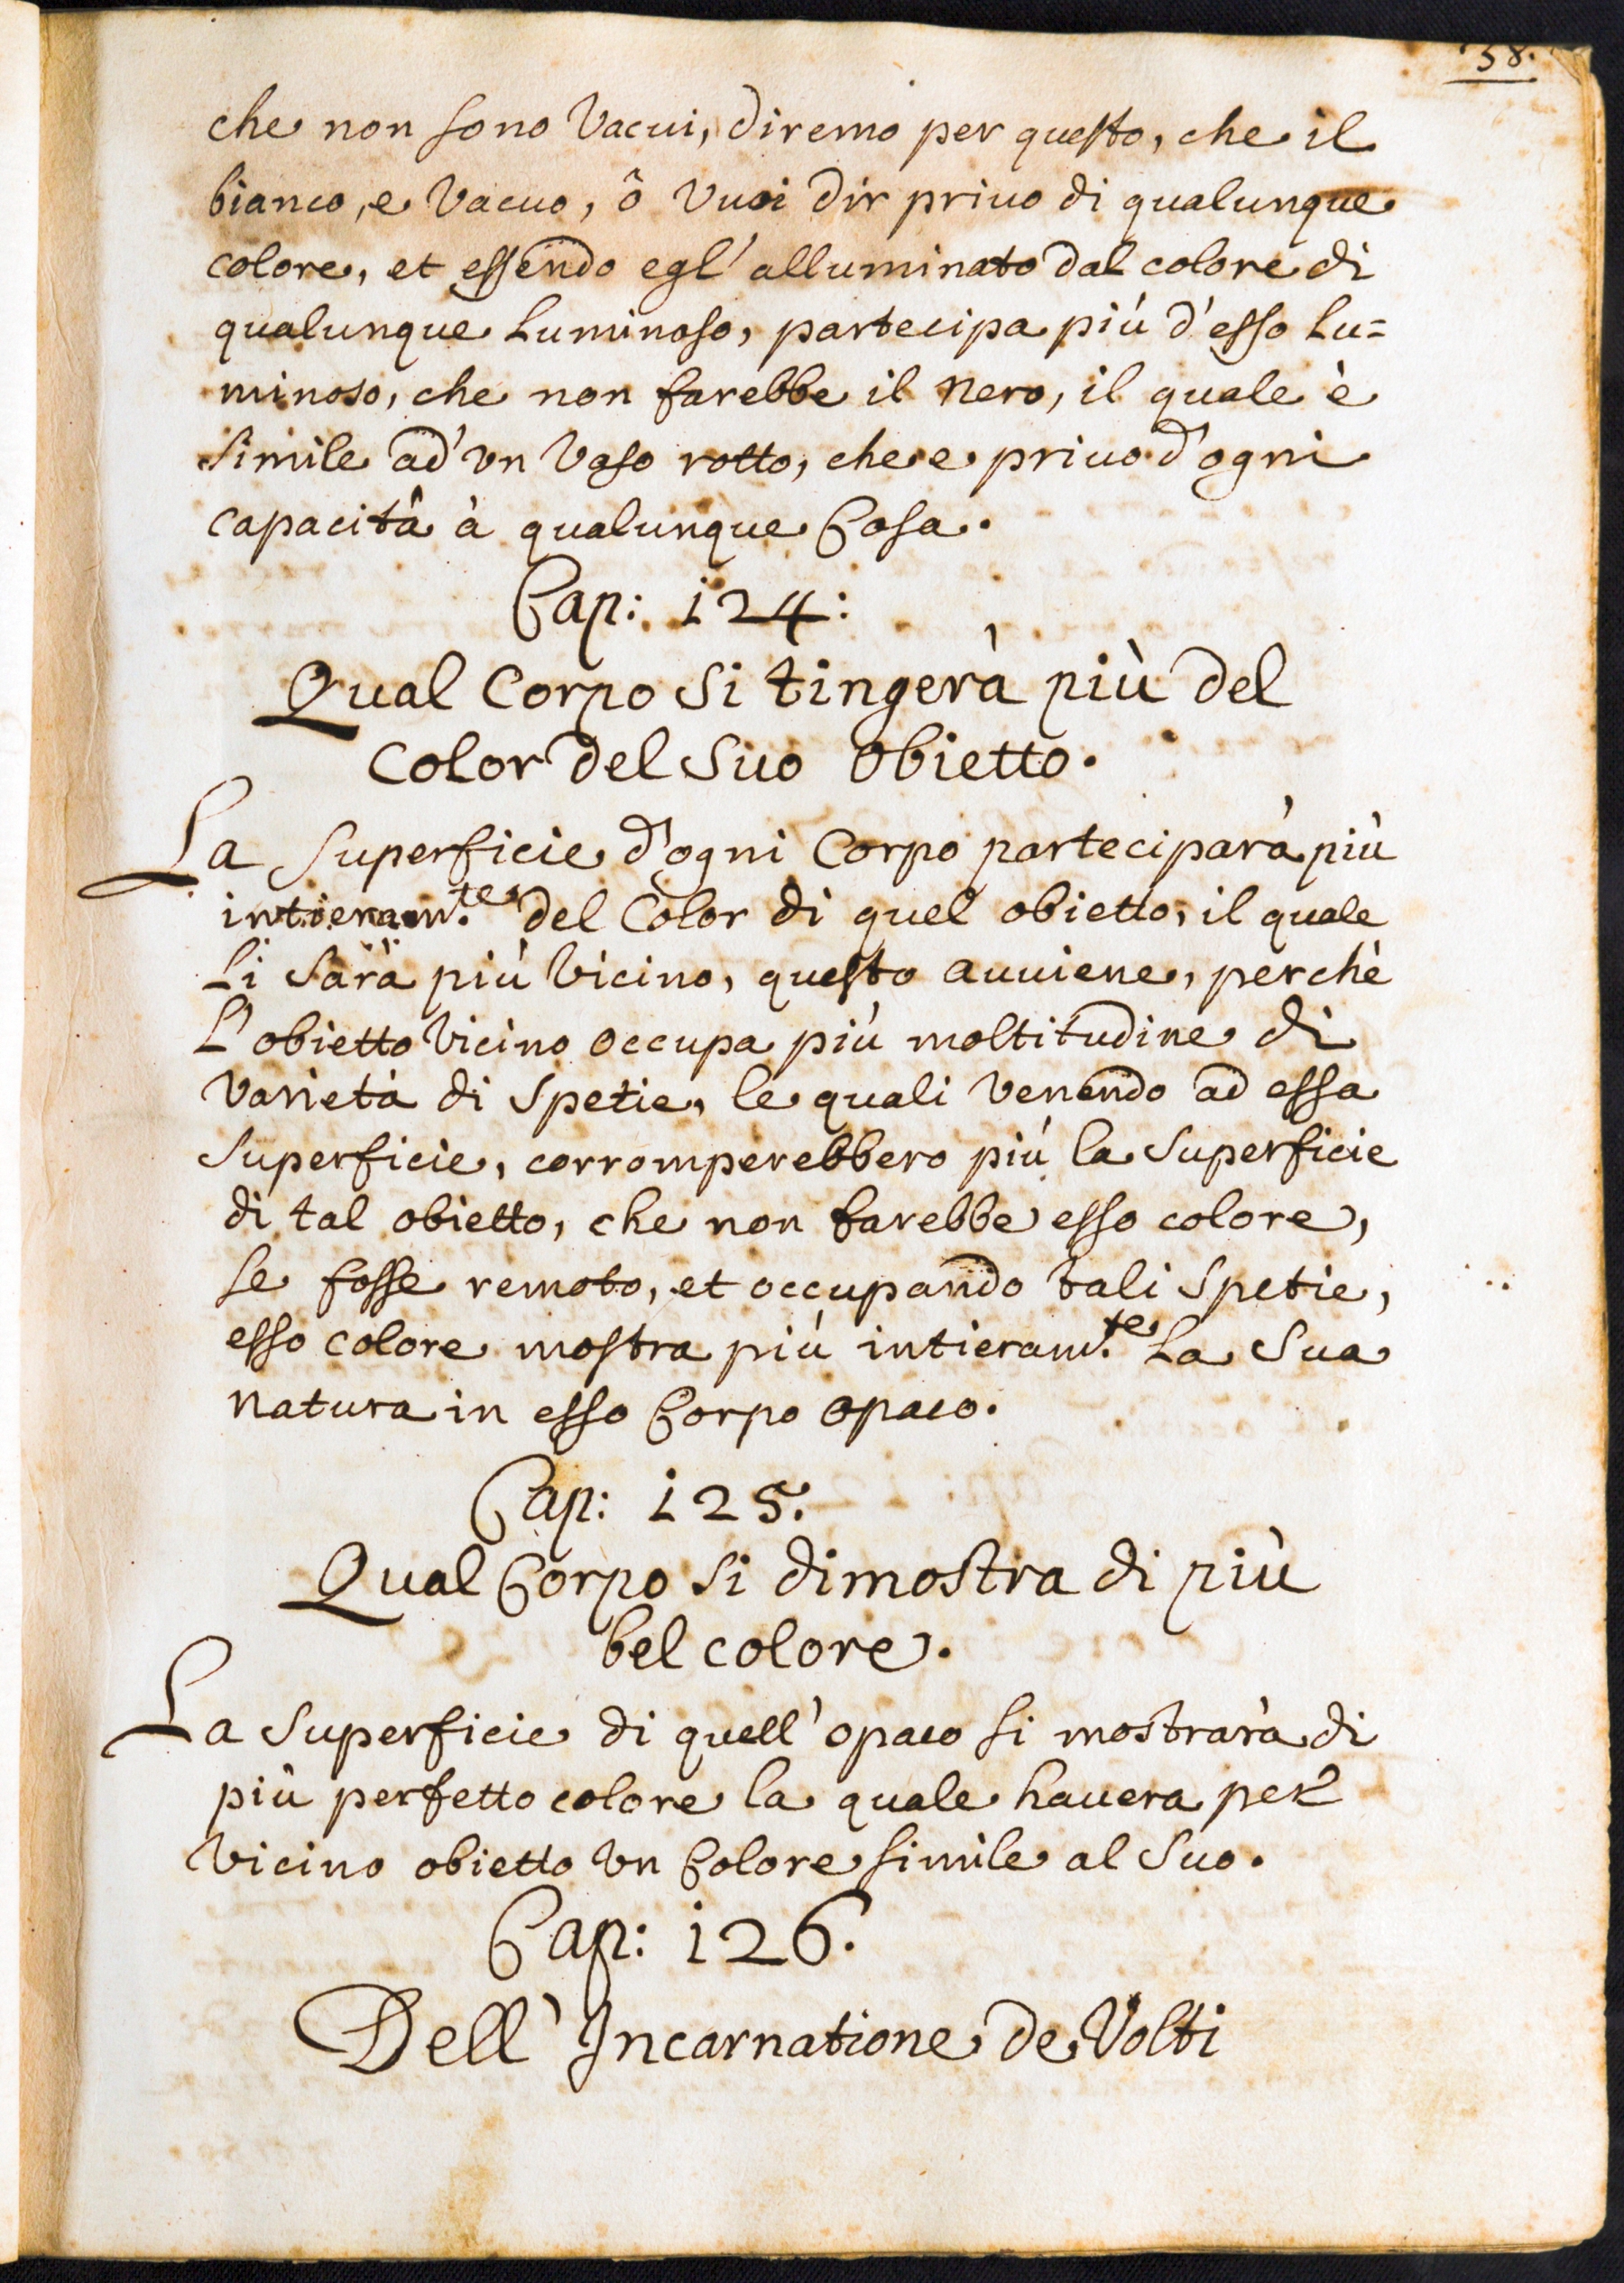 58.
che non sono Vacui, diremo per questo, che il
bianco, e Vacuo, ô Vuoi dir priuo di qualunque
colore, et essendo egl' alluminato dal colore di
qualunque Luminoso, partecipa più d'esso Lu=
minoso, che non farebbe il Nero, il quale è
Simile ad' vn Vaso rotto, che e priuo d'ogni
capacitâ à qualunque Cosa.
Cap: 124:
Qual Corpo Si tingerà più del
Color del Suo Obietto.
La Superficie d'ogni Corpo parteciparà più
intieram.te del Color di quel obietto, il quale
Li Sarà più Vicino, questo auuiene, perchè
L'obietto Vicino occupa più moltitudine di
Varietà di Spetie, le quali Venendo ad essa
Superficie, corromperebbero più la Superficie
di tal obietto, che non farebbe esso colore,
Se fosse remoto, et occupando tali Spetie,
esso colore mostra più intieram.te La Sua
Natura in esso Corpo opaco.
Cap: 125.
Qual Corpo Si dimostra di più
bel colore.
La Superficie di quell' opaco Si mostrarà di
più perfetto colore la quale hauera per
Vicino obietto Vn Colore Simile al Suo.
Cap: 126.
Dell' Incarnatione de Volti